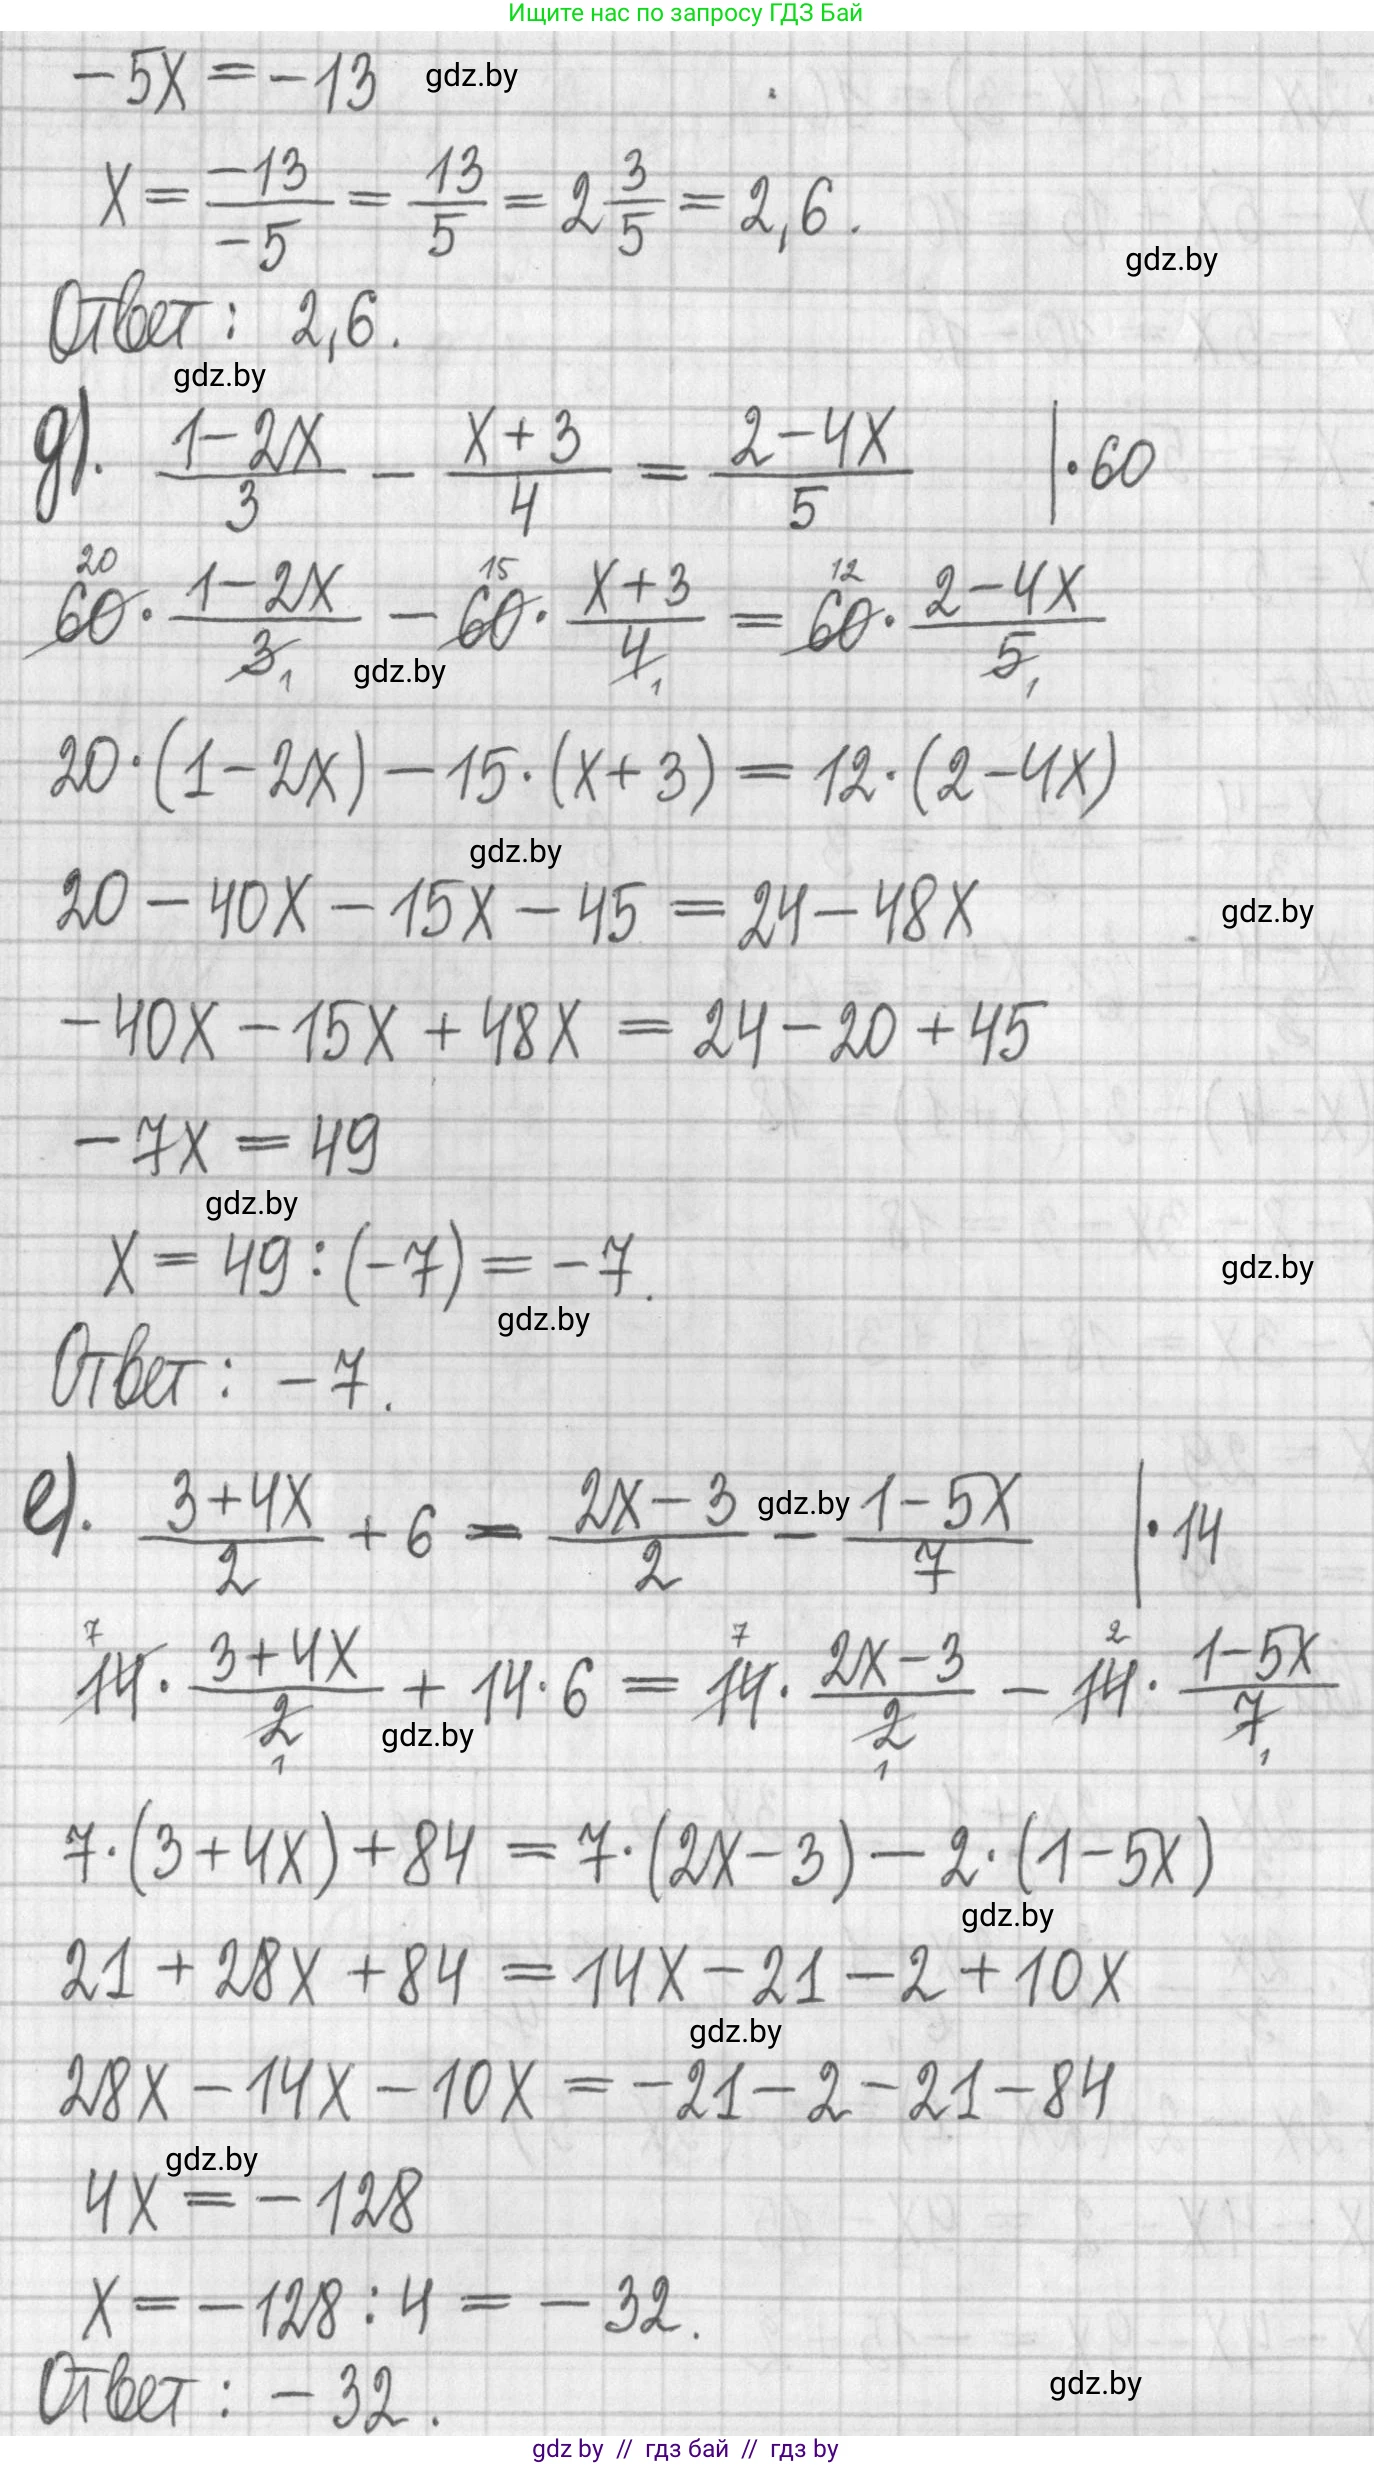 Ищите нас по запросу ГДЗ Бай
-5x = -13 gdz.by
x = -13/-5 = 13/5 = 2 3/5 = 2,6.
gdz.by
Ответ: 2,6.
gdz.by
д). 1-2x/3 - x+3/4 = 2-4x/5 |·60
20 15 12
60 · 1-2x/3 - 60 · x+3/4 = 60 · 2-4x/5
1 gdz.by 1 1
20·(1-2x) - 15·(x+3) = 12·(2-4x)
gdz.by
20 - 40x - 15x - 45 = 24 - 48x gdz.by
-40x - 15x + 48x = 24 - 20 + 45
-7x = 49
gdz.by
x = 49 : (-7) = -7. gdz.by
gdz.by
Ответ: -7.
е). 3+4x/2 + 6 = 2x-3/2 gdz.by - 1-5x/7 |·14
7 7 2
14 · 3+4x/2 + 14·6 = 14 · 2x-3/2 - 14 · 1-5x/7
1 gdz.by 1 1
7·(3+4x) + 84 = 7·(2x-3) - 2·(1-5x)
gdz.by
21 + 28x + 84 = 14x - 21 - 2 + 10x
gdz.by
28x - 14x - 10x = -21 - 2 - 21 - 84
gdz.by
4x = -128
x = -128 : 4 = -32.
Ответ: -32. gdz.by
gdz by // гдз бай // гдз by